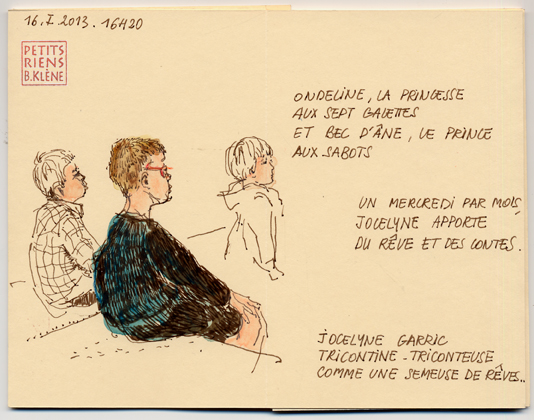 16.I.2013. 16H20
PETITS
RIENS
B.KLÈNE
ONDELINE, LA PRINCESSE
AUX SEPT GALETTES
ET BEC D'ÂNE, LE PRINCE
AUX SABOTS
UN MERCREDI PAR MOIS,
JOCELYNE APPORTE
DU RÊVE ET DES CONTES.
JOCELYNE GARRIC
TRICONTINE-TRICONTEUSE
COMME UNE SEMEUSE DE RÊVES..